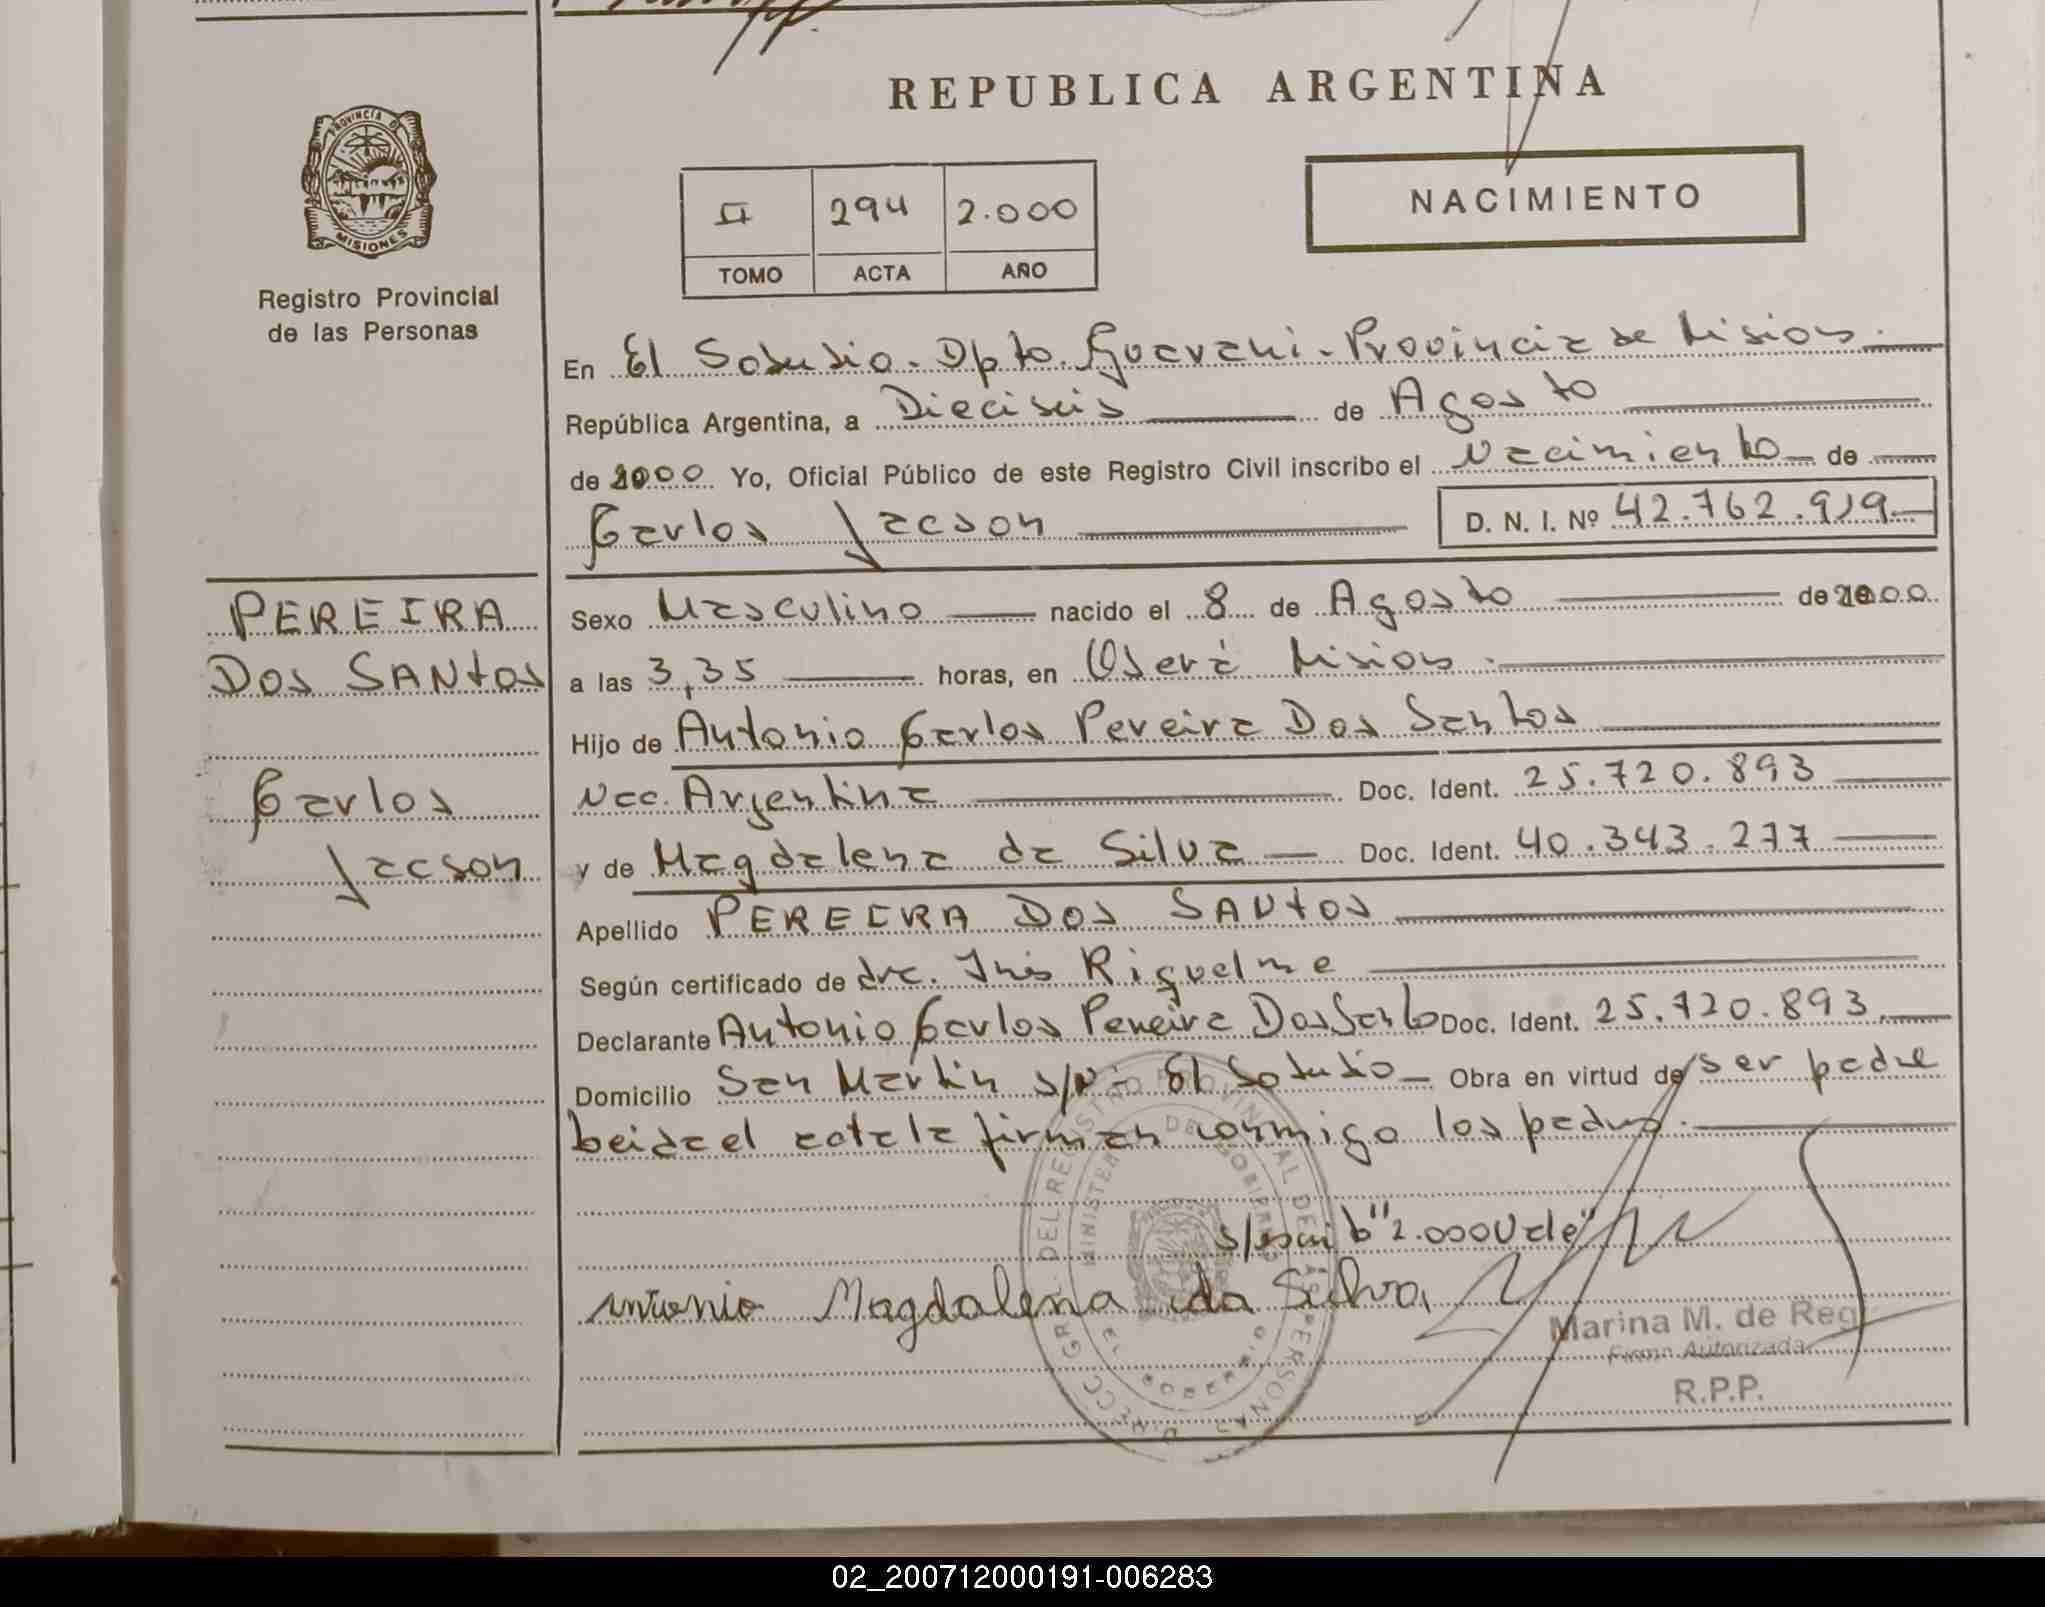 REPUBLICA ARGENTINA
PROVINCIA DE
MISIONES
Registro Provincial
de las Personas
II 294 2.000
TOMO ACTA AÑO
NACIMIENTO
En El Soberbio. Dpto. Guarani. Provincia de Misiones.
República Argentina, a Dieciseis de Agosto
de 2000 Yo, Oficial Público de este Registro Civil inscribo el Nacimiento de
Carlos Jacson D. N. I. Nº 42.762.919
PEREIRA
DOS SANtos
Carlos
Jacson
Sexo Masculino nacido el 8 de Agosto de 2000
a las 3,35 horas, en Oberá Misiones.
Hijo de Antonio Carlos Pereira Dos Santos
Nac. Argentina Doc. Ident. 25.720.893
y de Magdalena da Silva Doc. Ident. 40.343.277
Apellido PEREIRA DOS SANtos
Según certificado de dra. Inés Riquelme
Declarante Antonio Carlos Pereira Dos Santos Doc. Ident. 25.720.893
Domicilio San Martin s/N- El Soberbio Obra en virtud de ser padre
Leida el acta la firman conmigo los padres.
s/escrib "2.000 Vale"
Antonio Magdalena da Silva
Marina M. de Reg
Firma Autorizada
R.P.P.
02_200712000191-006283